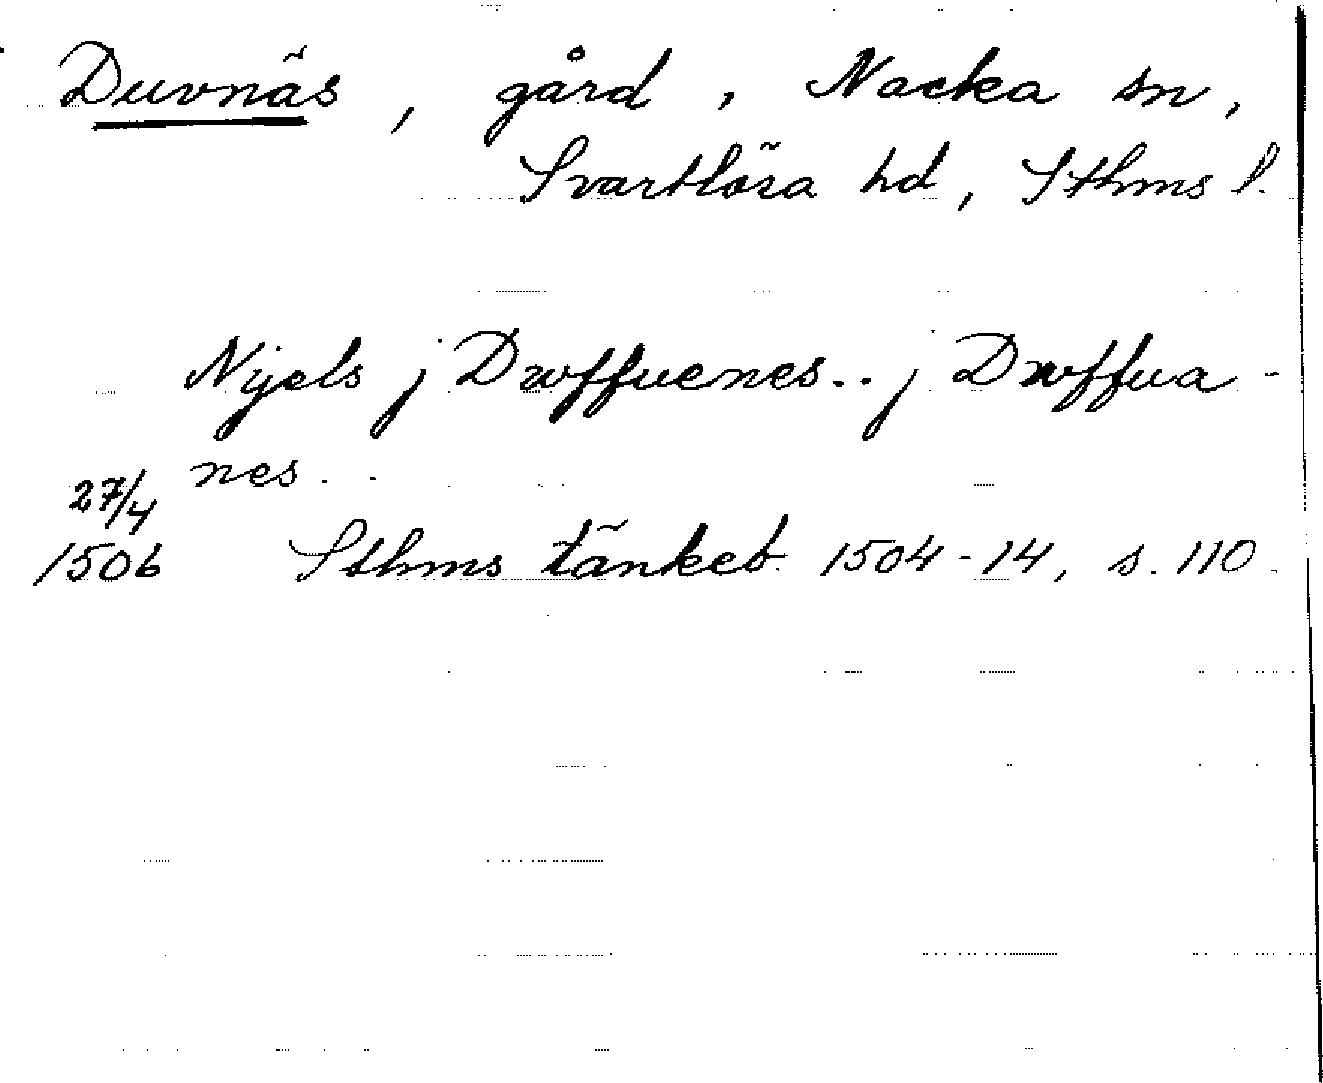 Duvnäs, gård, Nacka sn,
Svartlösa hd, Sthms l.
Nijels j Dwffuenes.. j Dwffua-
nes..
27/4
1506 Sthms tänkeb. 1504-14, s. 110.